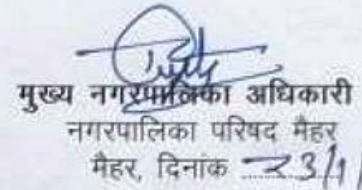 मुख्य नगरपालिका अधिकारी
नगरपालिका परिषद मैहर
मैहर, दिनांक 23/1/